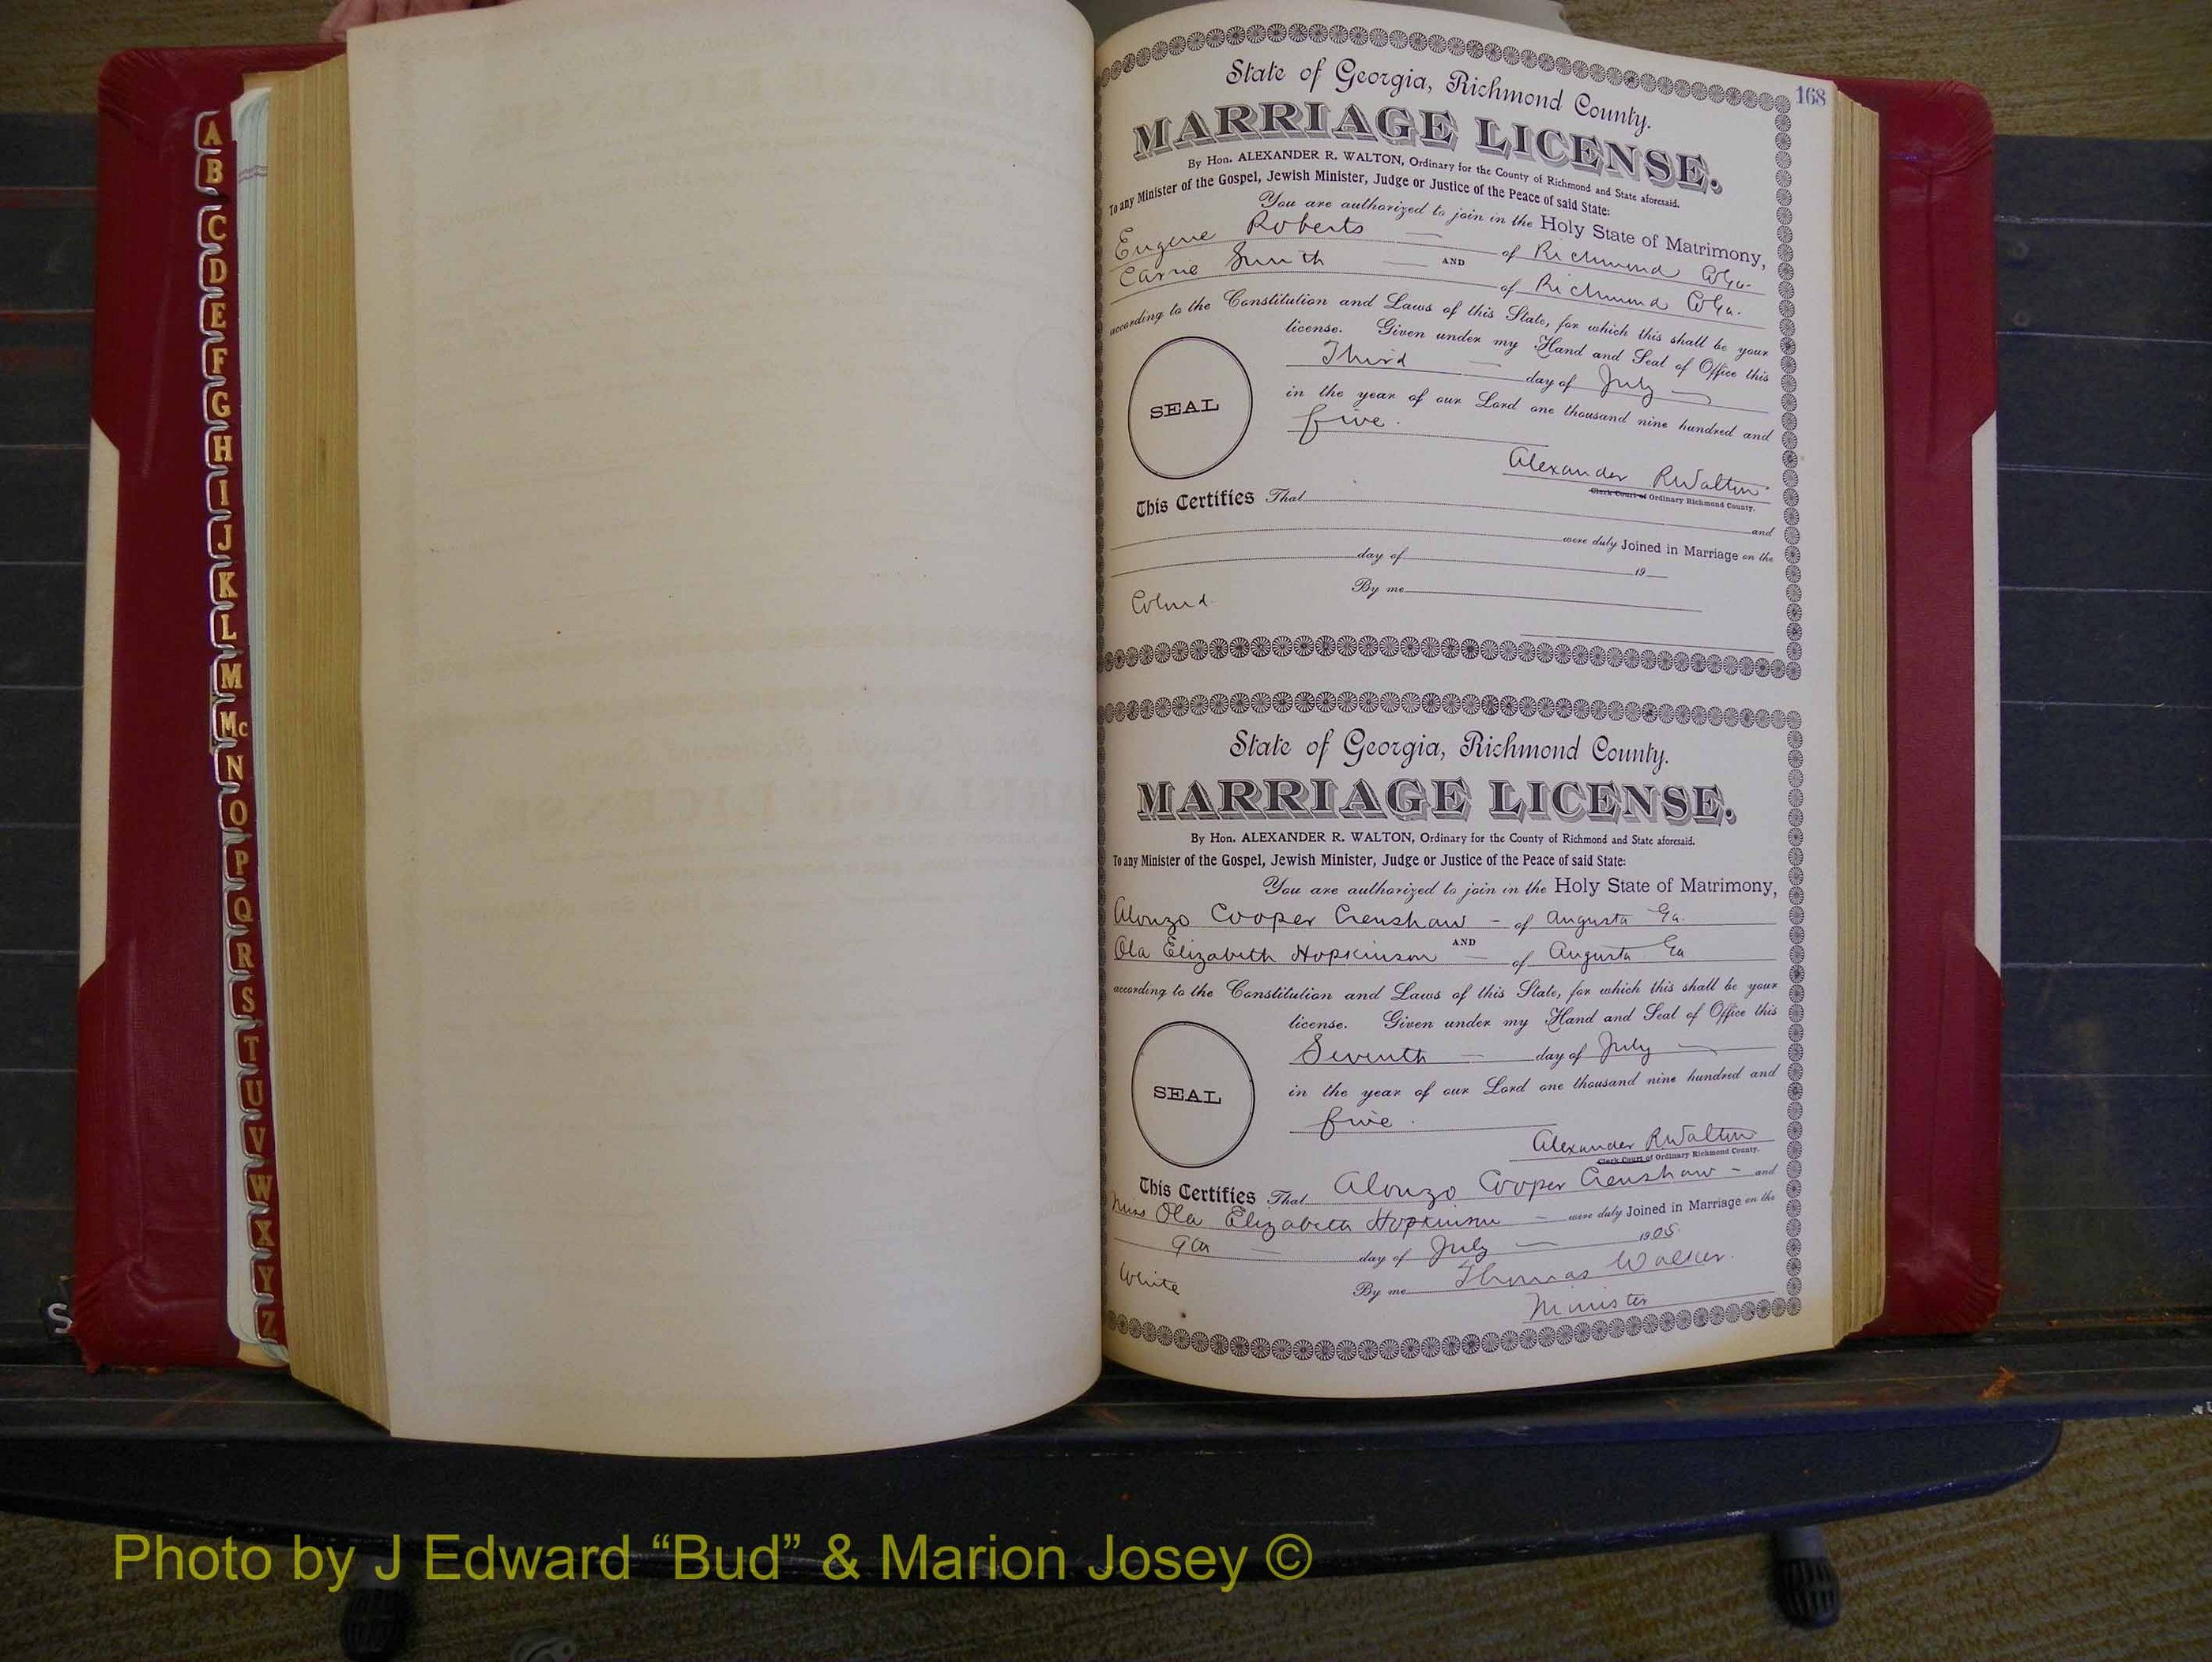 A
B
C
D
E
F
G
H
I
J
K
L
M
Mc
N
O
P
Q
R
S
T
U
V
W
X
Y
Z
168
State of Georgia, Richmond County.
MARRIAGE LICENSE.
By Hon. ALEXANDER R. WALTON, Ordinary for the County of Richmond and State aforesaid.
To any Minister of the Gospel, Jewish Minister, Judge or Justice of the Peace of said State:
You are authorized to join in the Holy State of Matrimony,
Eugene Roberts — of Richmond Co Ga.
AND
Carrie Smith — of Richmond Co Ga.
according to the Constitution and Laws of this State, for which this shall be your
license. Given under my Hand and Seal of Office this
Third — day of July —
in the year of our Lord one thousand nine hundred and
SEAL
five.
Alexander R Walton
Clerk Court of Ordinary Richmond County.
This Certifies That
and
were duly Joined in Marriage on the
day of 19
Colord By me
State of Georgia, Richmond County.
MARRIAGE LICENSE.
By Hon. ALEXANDER R. WALTON, Ordinary for the County of Richmond and State aforesaid.
To any Minister of the Gospel, Jewish Minister, Judge or Justice of the Peace of said State:
You are authorized to join in the Holy State of Matrimony,
Alonzo Cooper Crenshaw - of Augusta Ga.
AND
Ola Elizabeth Hopkinson — of Augusta Ga
according to the Constitution and Laws of this State, for which this shall be your
license. Given under my Hand and Seal of Office this
Seventh — day of July —
in the year of our Lord one thousand nine hundred and
SEAL
five.
Alexander R Walton
Clerk Court of Ordinary Richmond County.
This Certifies That Alonzo Cooper Crenshaw - and
Miss Ola Elizabeth Hopkinson — were duly Joined in Marriage on the
9th — day of July — 1905
White By me Thomas Walker
Minister
Photo by J Edward “Bud” & Marion Josey ©